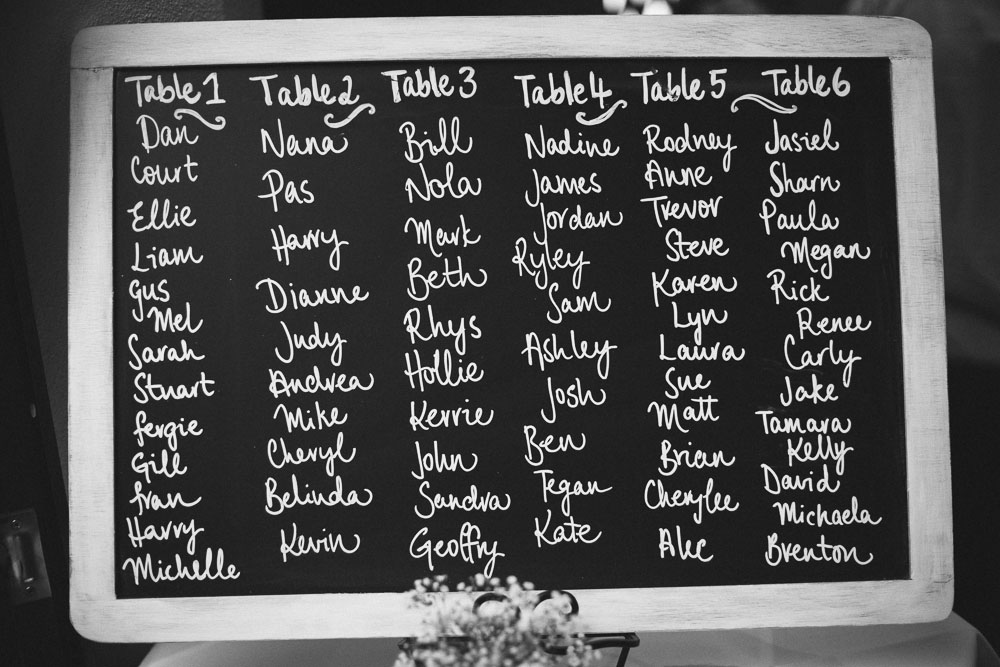 Table 1
Dan
Court
Ellie
Liam
Gus
Mel
Sarah
Stuart
Fergie
Gill
Fran
Harry
Michelle
Table 2
Nana
Pas
Harry
Dianne
Judy
Andrea
Mike
Cheryl
Belinda
Kevin
Table 3
Bill
Nola
Mark
Beth
Rhys
Hollie
Kerrie
John
Sandra
Geoffry
Table 4
Nadine
James
Jordan
Ryley
Sam
Ashley
Josh
Ben
Tegan
Kate
Table 5
Rodney
Anne
Trevor
Steve
Karen
Lyn
Laura
Sue
Matt
Brian
Cherylee
Alec
Table 6
Jasiel
Sharn
Paula
Megan
Rick
Renee
Carly
Jake
Tamara
Kelly
David
Michaela
Brenton